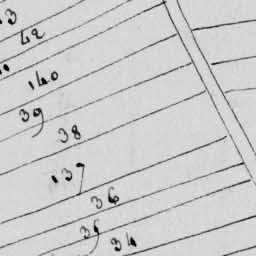 42
140
39
38
137
36
35
34